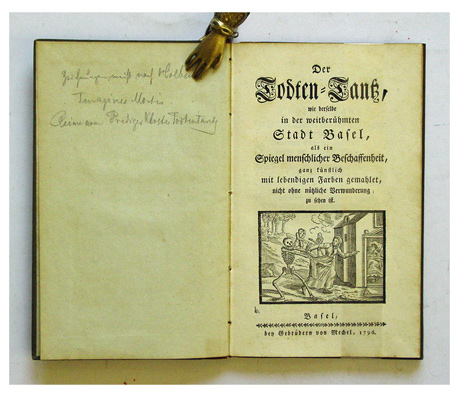 Imagines Mortis
Der
Todten-Tantz,
wie derselbe
in der weitberühmten
Stadt Basel,
als ein
Spiegel menschlicher Beschaffenheit,
ganz künstlich
mit lebendigen Farben gemahlet,
nicht ohne nützliche Verwunderung
zu sehen ist.
b.
Basel,
bey Gebrüdern von Mechel, 1796.